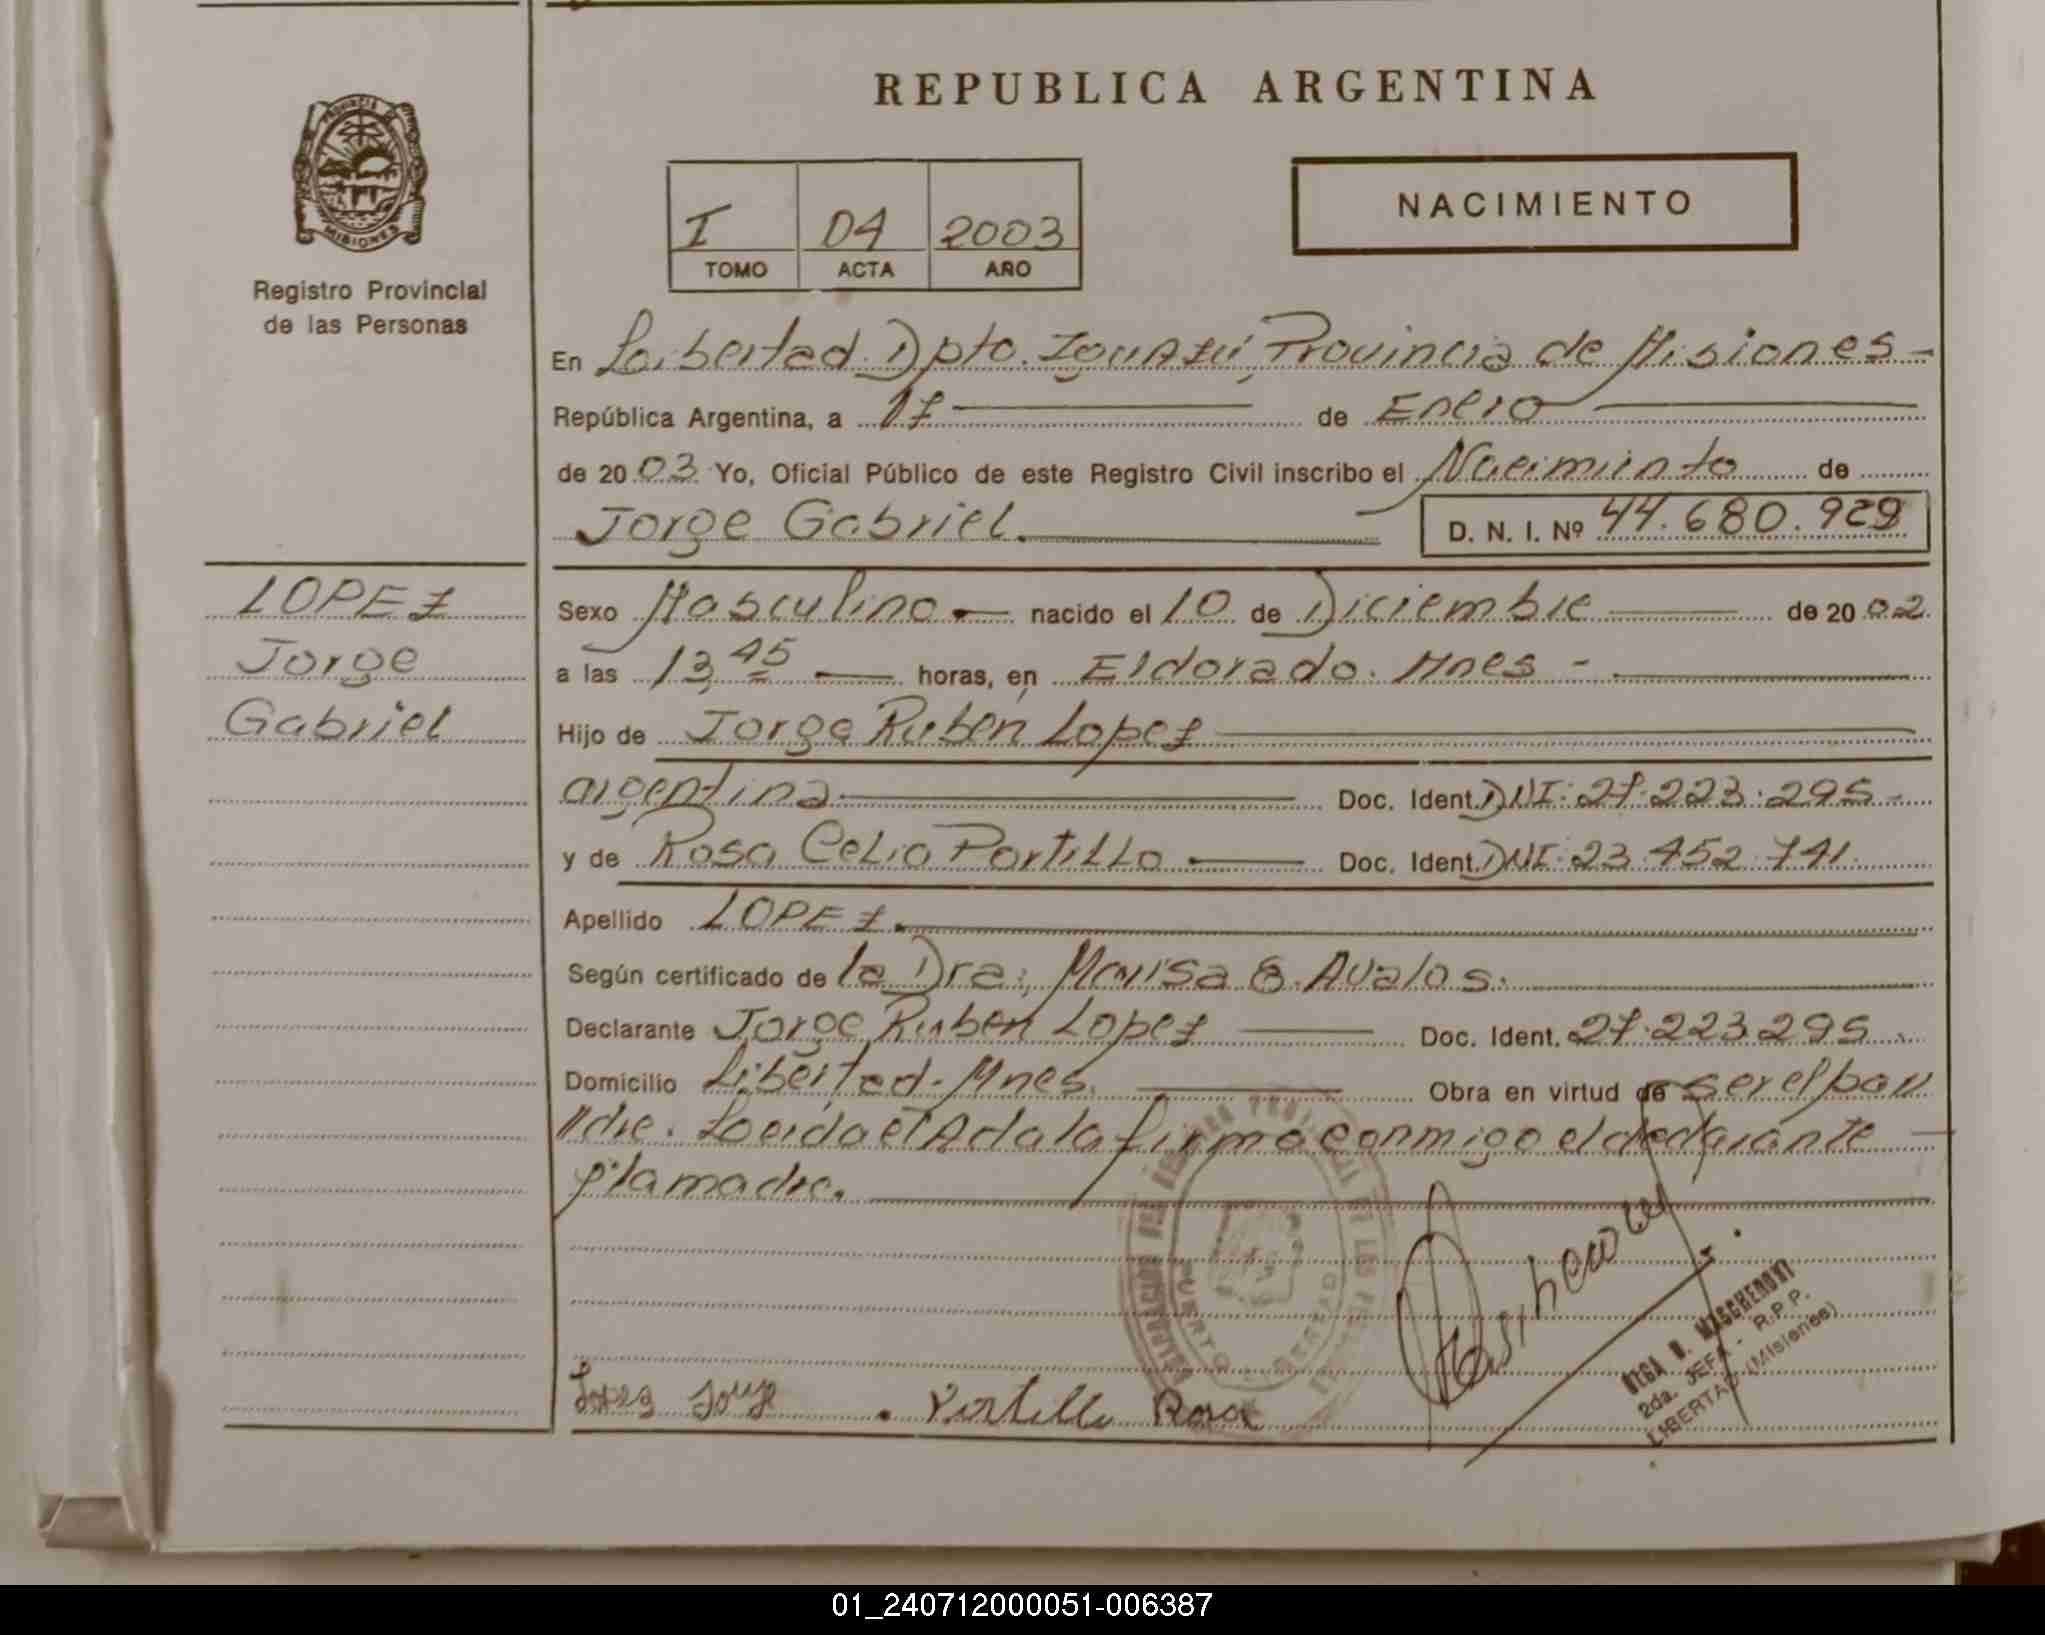 REPUBLICA ARGENTINA
PROVINCIA DE
MISIONES
Registro Provincial
de las Personas
I 04 2003
TOMO ACTA AÑO
NACIMIENTO
En Libertad Dpto. Iguazú, Provincia de Misiones -
República Argentina, a 17 de Enero
de 2003 Yo, Oficial Público de este Registro Civil inscribo el Nacimiento de
Jorge Gabriel. D. N. I. Nº 44.680.929
LOPEZ
Jorge
Gabriel
Sexo Masculino - nacido el 10 de Diciembre de 2002.
a las 13,45 horas, en Eldorado. Mnes -
Hijo de Jorge Ruben Lopez
argentina Doc. Ident. DNI: 27.223.295 -
y de Rosa Celia Portillo Doc. Ident. DNI: 23.452.741.
Apellido LOPEZ.
Según certificado de la Dra: Marisa E. Avalos.
Declarante Jorge Ruben Lopez Doc. Ident. 27.223.295.
Domicilio Libertad - Mnes. Obra en virtud de ser el pa//
//dre. Leida el Acta la firma conmigo el declarante
y la madre.
PUERTO LIBERTAD
OLGA D. MASCHERONI
2da. JEFA - R.P.P.
LIBERTAD (Misiones)
Lopez Jorge . Portillo Rosa
01_240712000051-006387